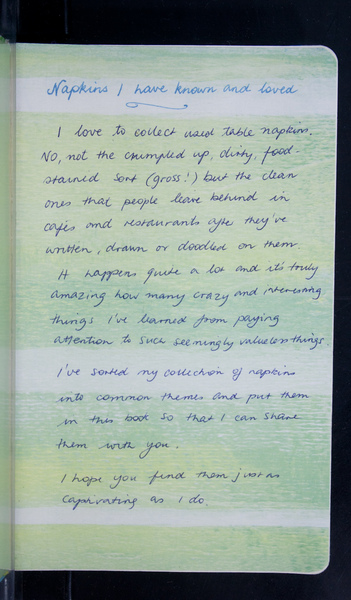 Napkins I have known and loved
I love to collect used table napkins.
No, not the crumpled up, dirty, food-
stained sort (gross!) but the clean
ones that people leave behind in
cafés and restaurants after they've
written, drawn or doodled on them.
It happens quite a lot and it's truly
amazing how many crazy and interesting
things I've learned from paying
attention to such seemingly valueless things.
I've sorted my collection of napkins
into common themes and put them
in this book so that I can share
them with you.
I hope you find them just as
captivating as I do.